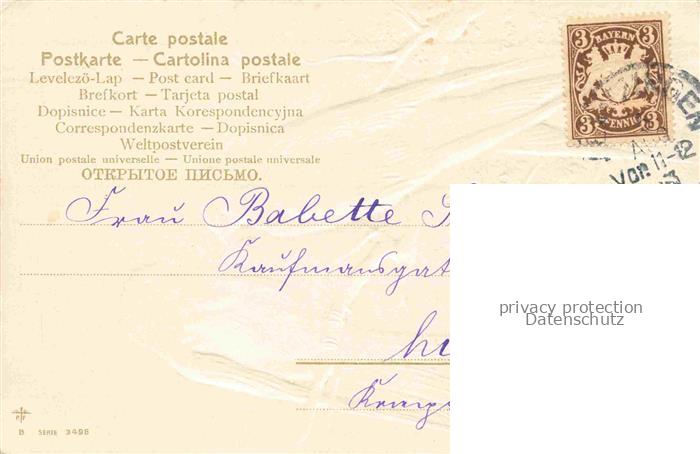 Carte postale
Postkarte — Cartolina postale
Levelező-Lap — Post card — Briefkaart
Brefkort — Tarjeta postal
Dopisnice — Karta Korespondencyjna
Correspondenzkarte — Dopisnica
Weltpostverein
Union postale universelle — Unione postale universale
ОТКРЫТОЕ ПИСЬМО.
3 BAYERN 3
3 PFENNIG 3
Vor. 11-12
Frau Babette
Kaufmansgat
hi
privacy protection
Datenschutz
B SERIE 3498